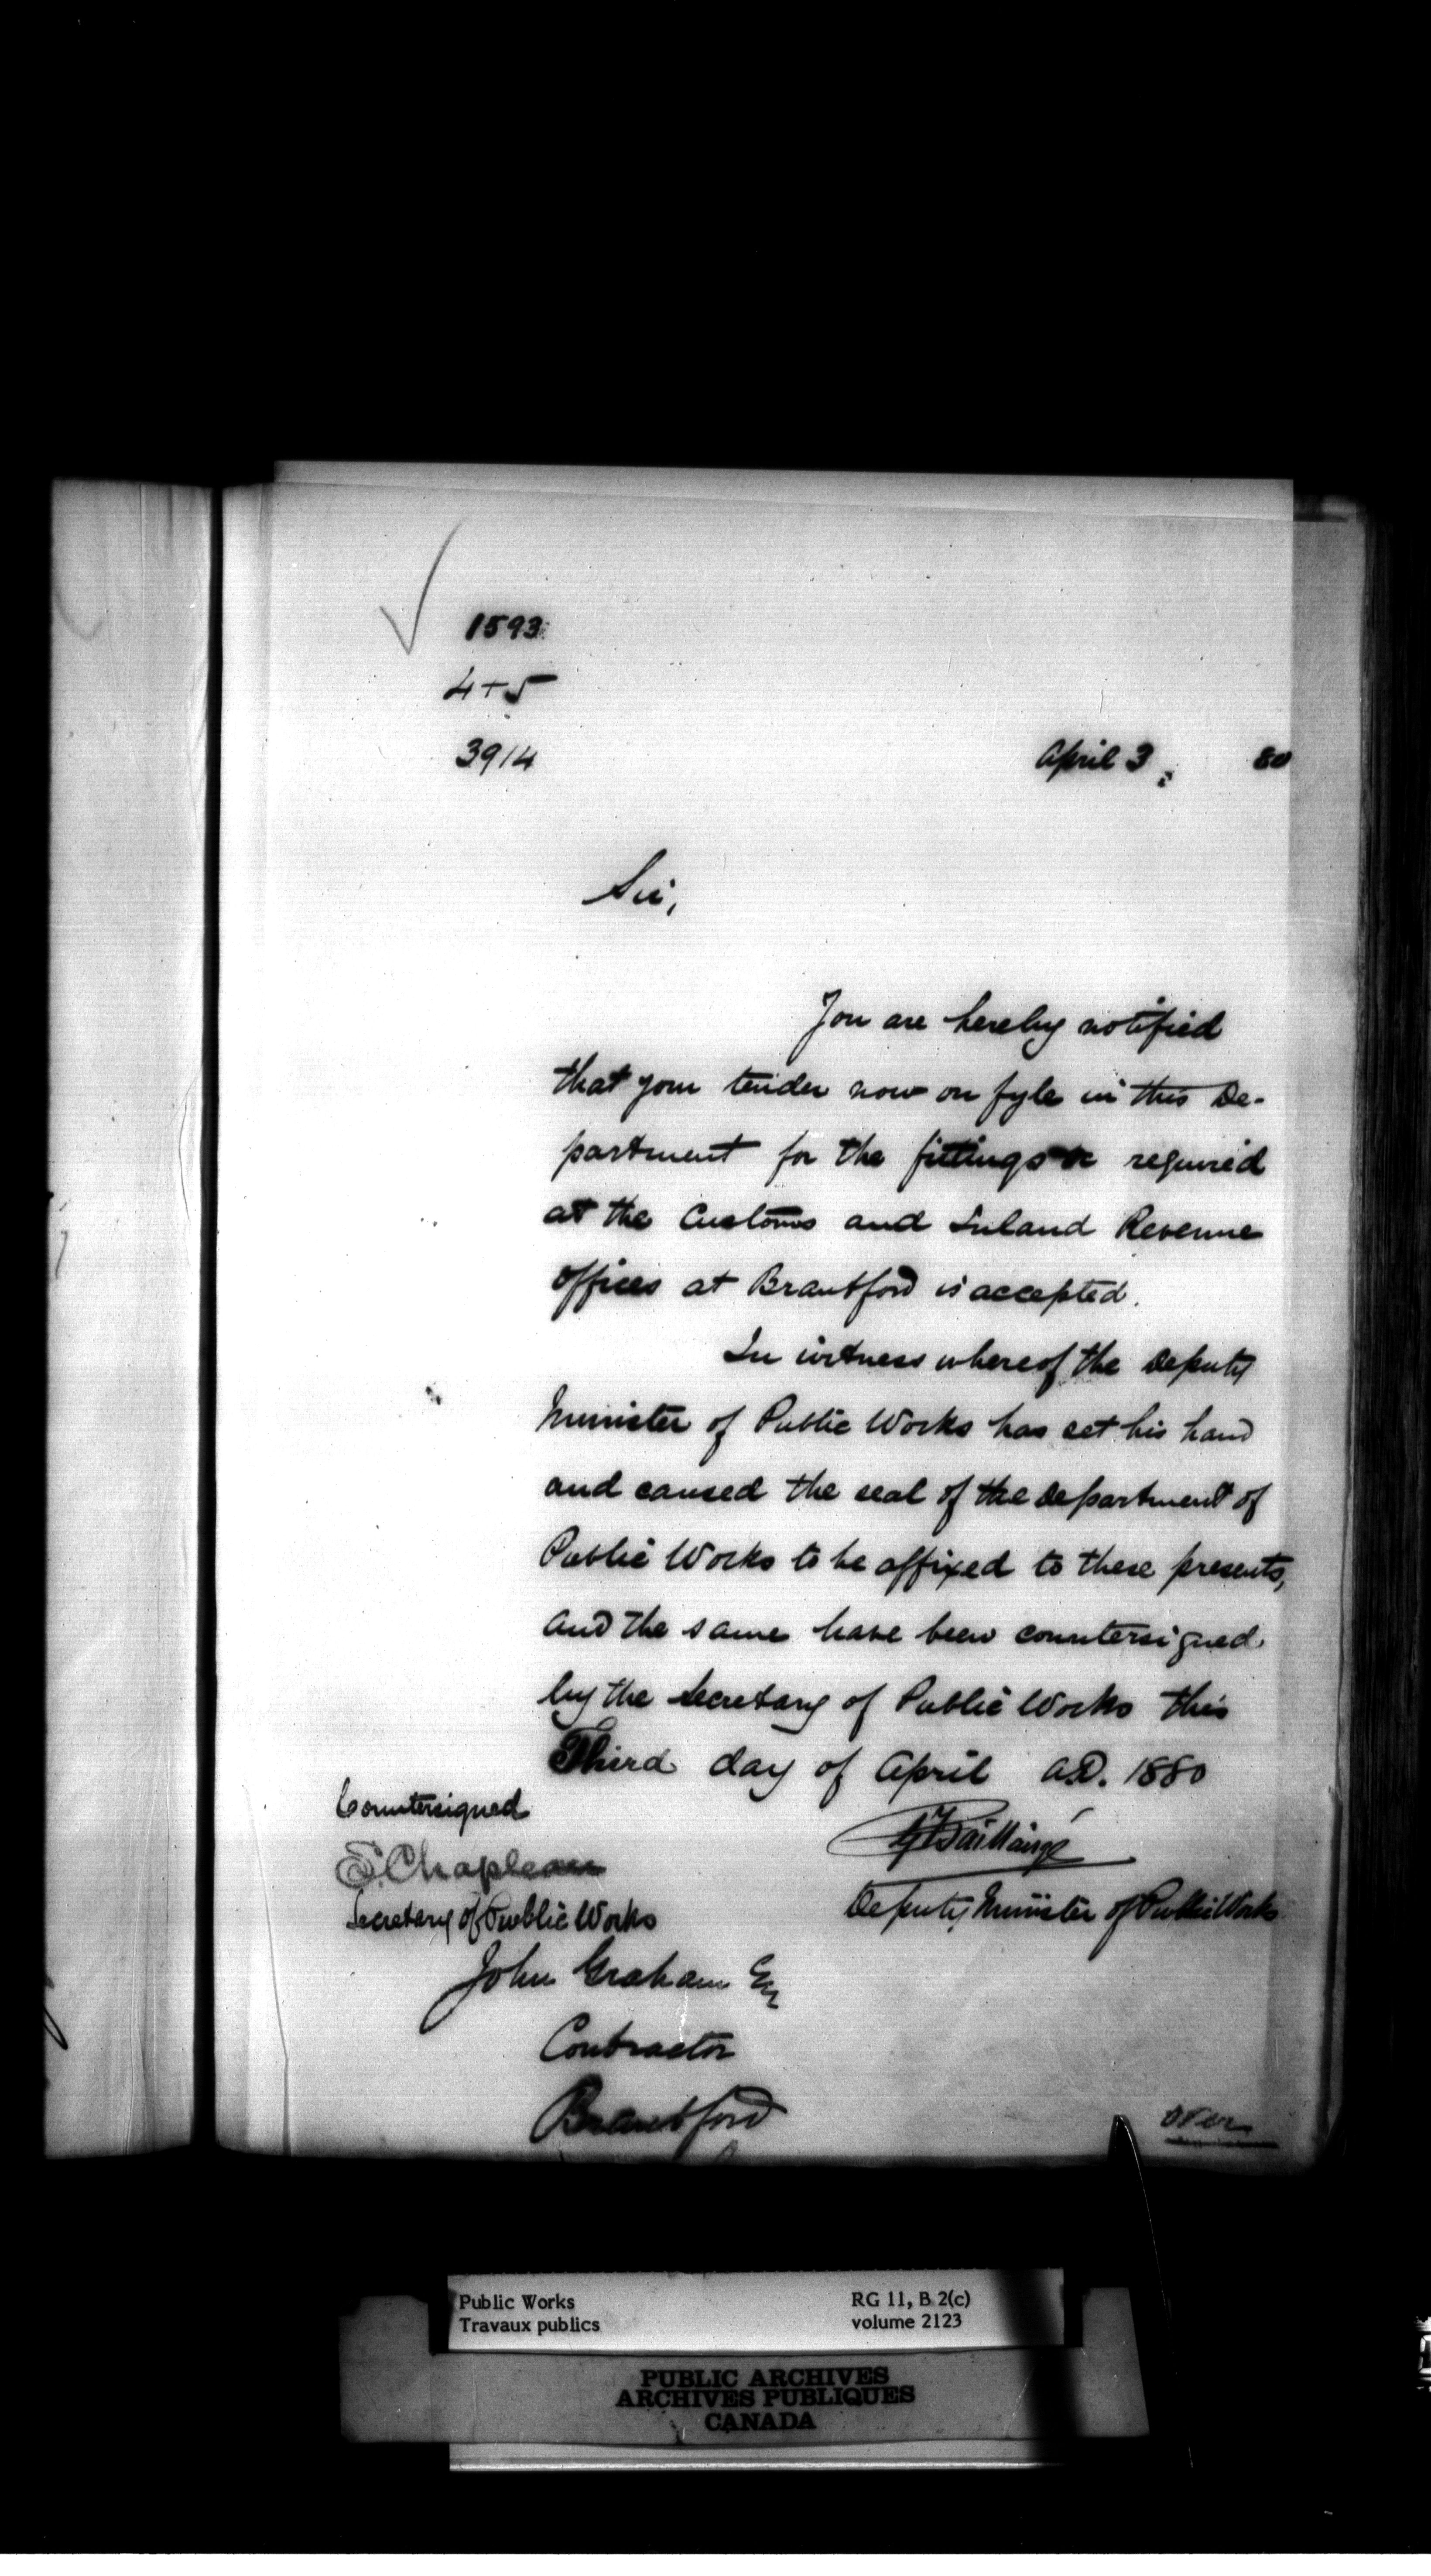 1593
4+5
3914
April 3, 80
Sir,
You are hereby notified
that your tender now on fyle in this De-
partment for the fittings &c required
at the Customs and Inland Revenue
offices at Brantford is accepted.
In witness whereof the Deputy
Minister of Public Works has set his hand
and caused the seal of the Department of
Public Works to be affixed to these presents,
and the same have been countersigned
by the Secretary of Public Works this
Third day of April A.D. 1880
Countersigned
S. Chapleau
Secretary of Public Works
G.F. Baillairgé
Deputy Minister of Public Works
John Graham Esq
Contractor
Brantford
over
Public Works
Travaux publics
RG 11, B 2(c)
volume 2123
PUBLIC ARCHIVES
ARCHIVES PUBLIQUES
CANADA